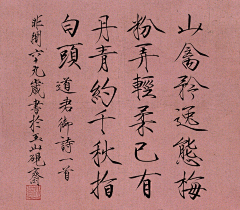 山禽矜逸態梅
粉弄輕柔已有
丹青約千秋指
白頭 道君御詩一首
非闇六十九歲書於玉山硯齋